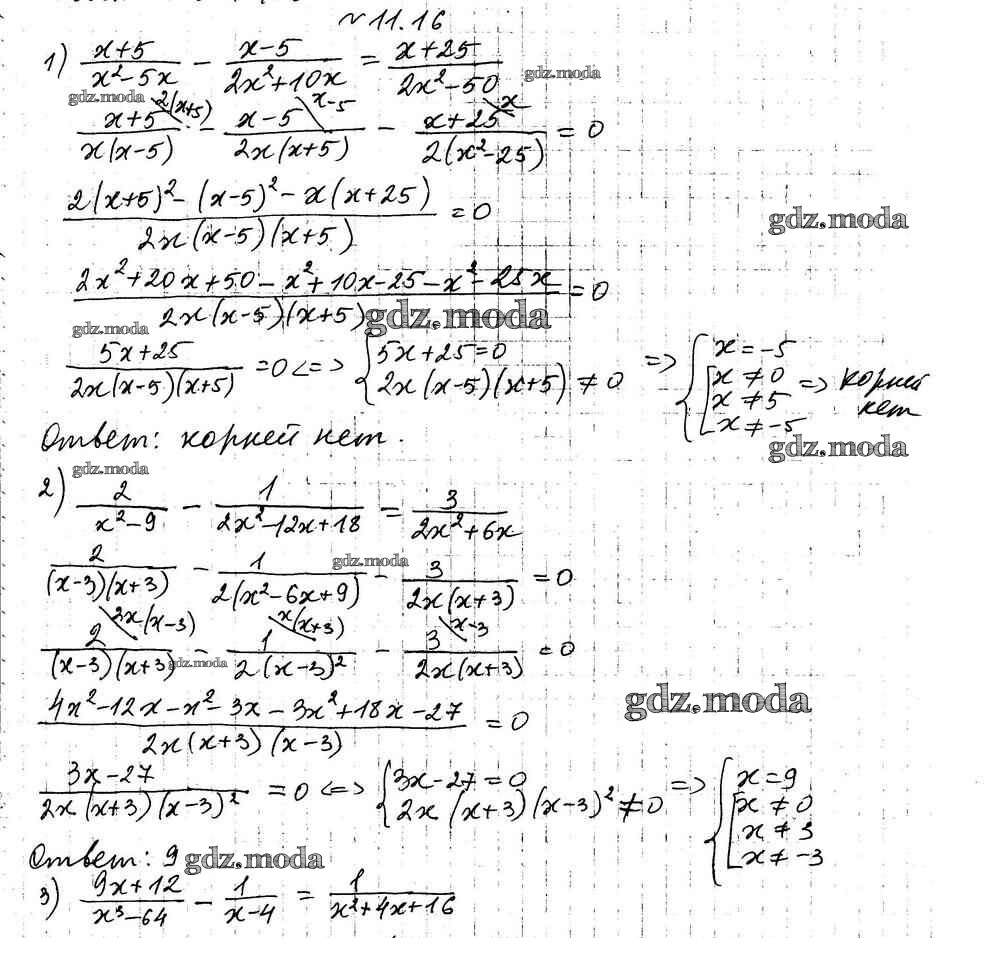 № 11.16
1) (x+5)/(x²-5x) - (x-5)/(2x²+10x) = (x+25)/(2x²-50) gdz.moda
gdz.moda 2(x+5) x-5 x
(x+5)/(x(x-5)) - (x-5)/(2x(x+5)) - (x+25)/(2(x²-25)) = 0
(2(x+5)² - (x-5)² - x(x+25))/(2x(x-5)(x+5)) = 0 gdz.moda
(2x²+20x+50-x²+10x-25-x²-25x)/(2x(x-5)(x+5)) = 0
gdz.moda gdz.moda
(5x+25)/(2x(x-5)(x+5)) = 0 <=> { 5x+25=0 2x(x-5)(x+5) ≠ 0 => { x=-5 [ x≠0 x≠5 x≠-5 => корней нет
Ответ: корней нет. gdz.moda
gdz.moda
2) 2/(x²-9) - 1/(2x²-12x+18) = 3/(2x²+6x)
2/((x-3)(x+3)) - 1/(2(x²-6x+9)) - 3/(2x(x+3)) = 0 gdz.moda
2x(x-3) x(x+3) x-3
2/((x-3)(x+3)) - 1/(2(x-3)²) - 3/(2x(x+3)) = 0 gdz.moda
(4x²-12x-x²-3x-3x²+18x-27)/(2x(x+3)(x-3)) = 0 gdz.moda
(3x-27)/(2x(x+3)(x-3)²) = 0 <=> { 3x-27=0 2x(x+3)(x-3)² ≠ 0 => { x=9 [ x≠0 x≠3 x≠-3
Ответ: 9 gdz.moda
3) (9x+12)/(x³-64) - 1/(x-4) = 1/(x²+4x+16)